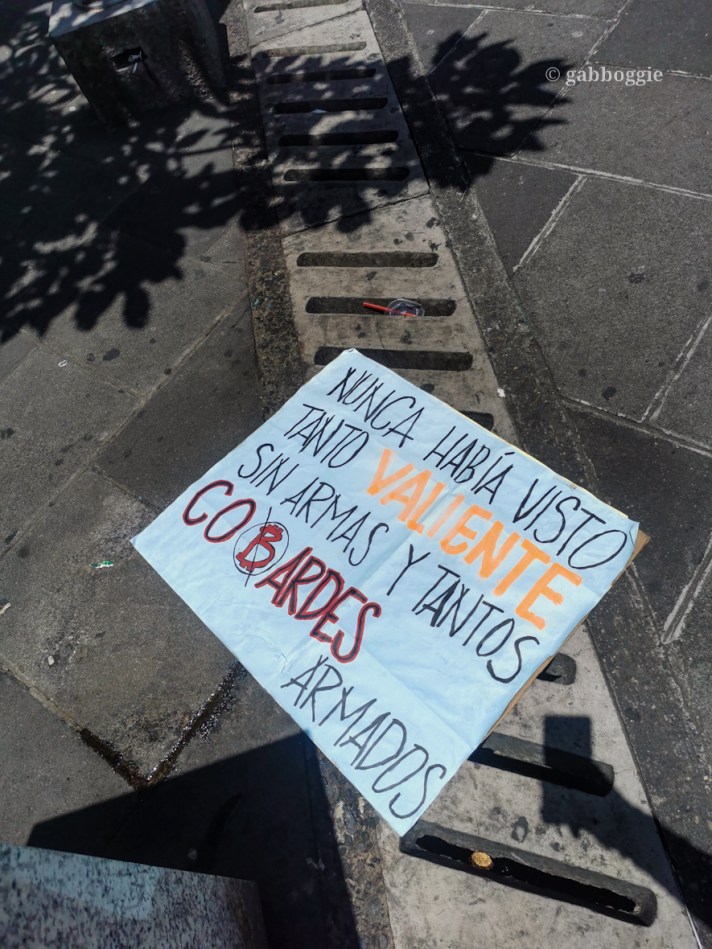 © gabboggie
NUNCA HABÍA VISTO
TANTO VALIENTE
SIN ARMAS Y TANTOS
COBARDES
ARMADOS